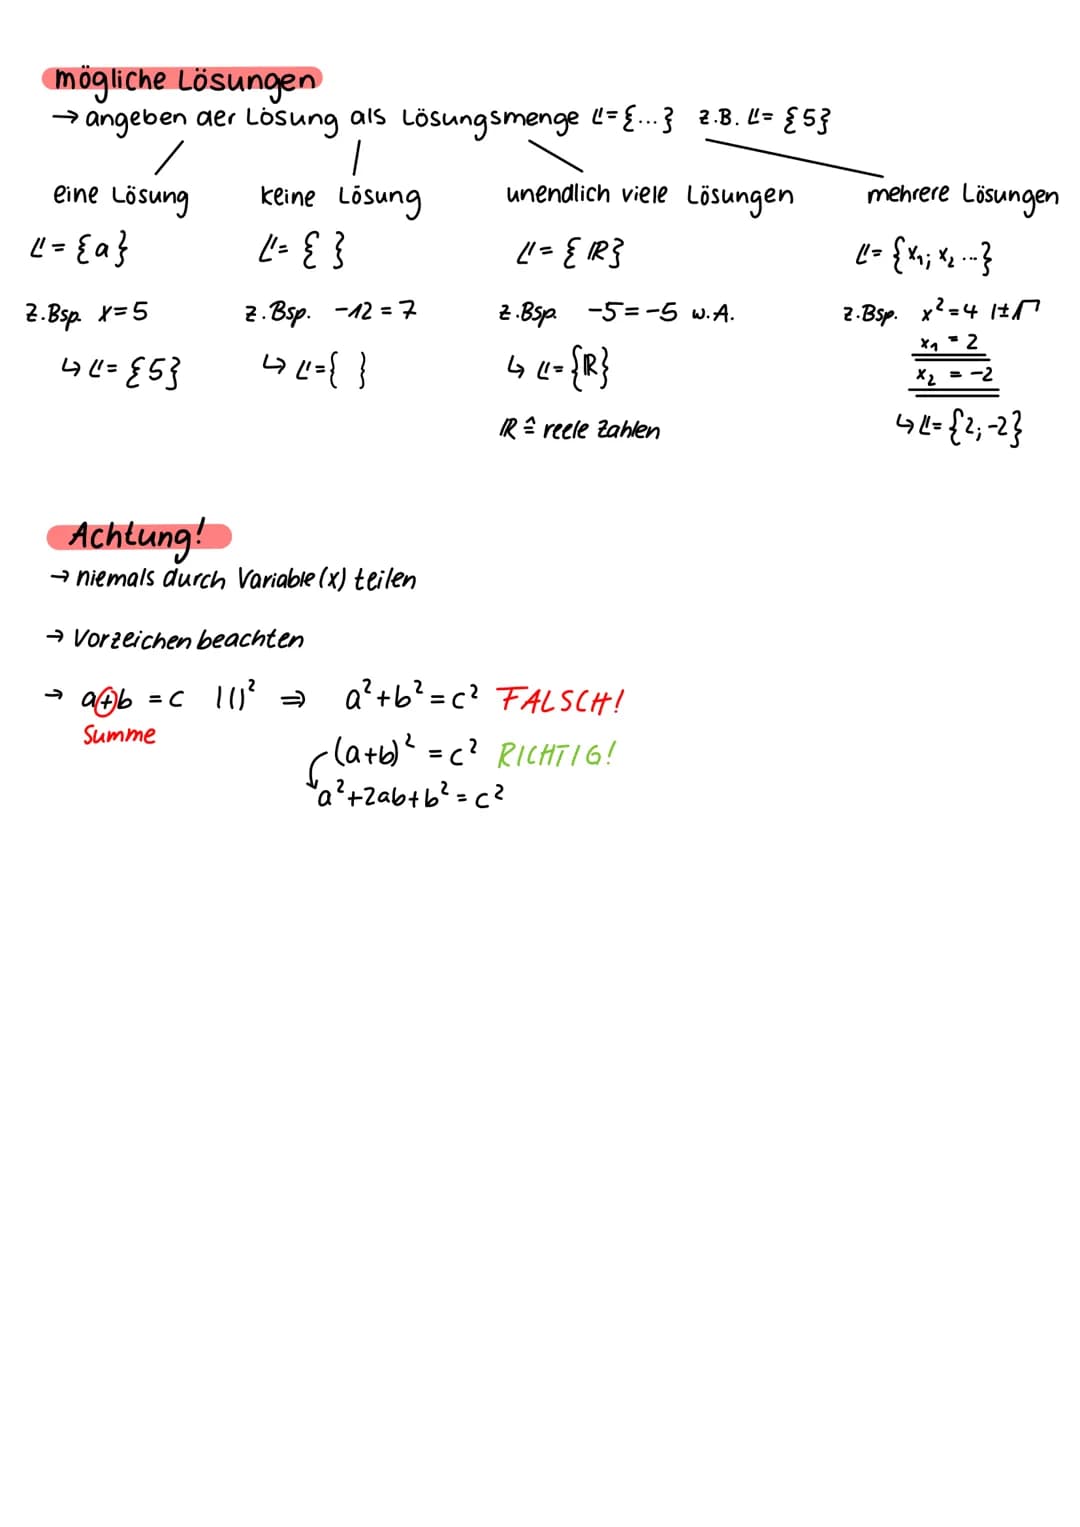 mögliche Lösungen
→ angeben der Lösung als Lösungsmenge 𝕃={...} z.B. 𝕃= {5}
eine Lösung
𝕃={a}
z.Bsp. x=5
↳ 𝕃= {5}
keine Lösung
𝕃= { }
z.Bsp. -12=7
↳ 𝕃={ }
unendlich viele Lösungen
𝕃= {ℝ}
z.Bsp. -5=-5 w.A.
↳ 𝕃={ℝ}
ℝ ≙ reele Zahlen
mehrere Lösungen
𝕃= {x₁; x₂ ...}
z.Bsp. x²=4 |±√
x₁ = 2
x₂ = -2
↳ 𝕃= {2; -2}
Achtung!
→ niemals durch Variable (x) teilen
→ Vorzeichen beachten
→ a+b = c |()² ⇒ a²+b²=c² FALSCH!
Summe
(a+b)² = c² RICHTIG!
a²+2ab+b² = c²